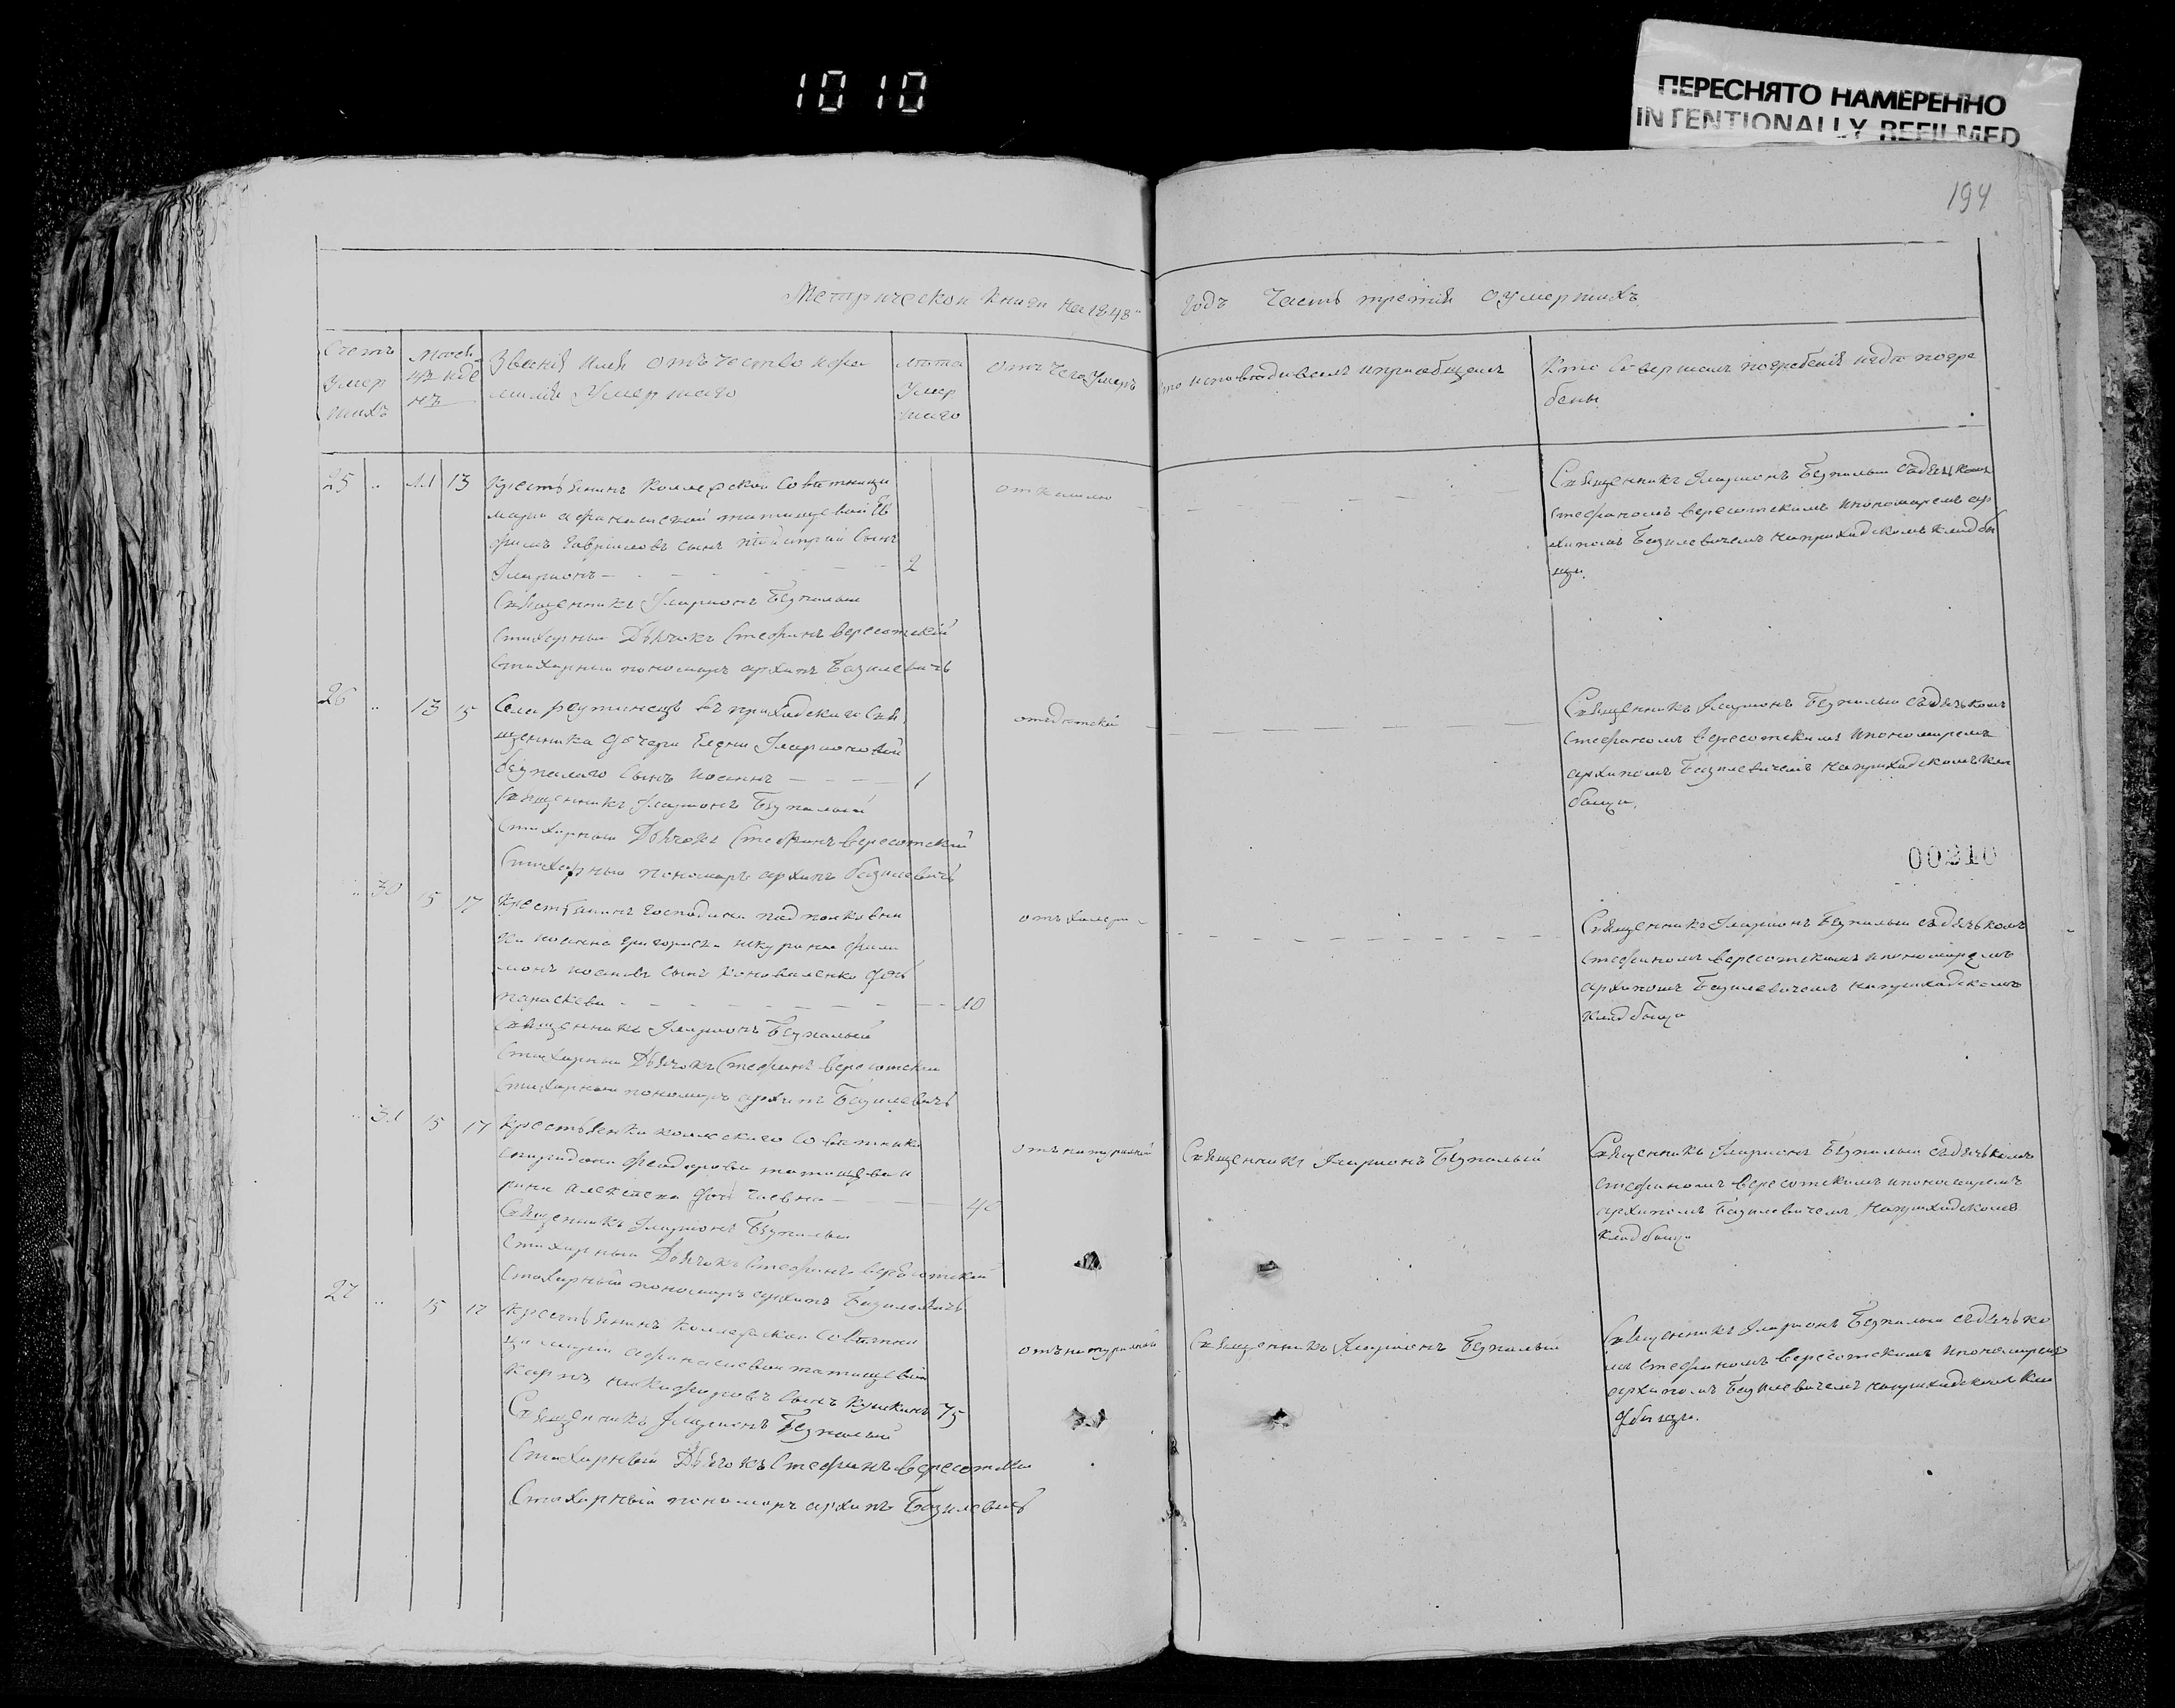 1010
ПЕРЕСНЯТО НАМЕРЕННО
INTENTIONALLY REFILMED
194
Метрической книги на 1848й годъ Часть третія о умершихъ
Счетъ умер шихъ
Месяцъ и де нь
Званія имя отъчество и фа
милія умершаго
лѣта умер шаго
отъ чего умеръ
кто исповѣдывалъ и приобщалъ
Кто совершалъ погребеніе и гдѣ погре
бены
25 .. 11 13 Крестьянинъ Коллежской Советницы
марии афанасиевой татищевой
гавриловъ сынъ сынъ
Иларионъ 2
от кашлю
Священникъ Иларионъ Безпалый
Стихарный Дьячокъ Стефанъ вересотский
Стихарный пономарь архипъ Базилевичь
Священникъ Иларионъ Безпалый съ дьячкомъ
Стефаномъ вересотскимъ и пономаремъ ар
хипомъ Базилевичемъ на приходскомъ кладби
щи.
26 .. 13 15 Села приходскаго Свя
щенника дочери Елены Иларионовой
безпалаго сынъ иоаннъ 1
отъ детской
Священникъ Иларионъ Безпалый
Стихарный Дьячокъ Стефанъ вересотский
Стихарный пономарь архипъ базилевичь
Священникъ Иларионъ Безпалый съ дьячкомъ
Стефаномъ вересотскимъ и пономаремъ
архипомъ Базилевичемъ на приходскомъ кла
бищи.
00210
.. 30 15 17 Крестьянинъ господина подполковни
ка иоанна григориева шкурина фили
монъ сынъ коноваленко дочь
параскева 10
отъ холеры
Священникъ Иларионъ Безпалый
Стихарный Дьячокъ Стефанъ вересотский
Стихарный пономарь архипъ Базилевичь
Священникъ Иларионъ Безпалый съ дьячькомъ
Стефаномъ вересотскимъ и пономаремъ
архипомъ Базилевичемъ на приходскомъ
кладбищи
.. 31 15 17 Крестьянка советника
спиридона феодорова татищева и
рина алексеева дочь 40
отъ натуральной
Священникъ Иларионъ Безпалый
Священникъ Иларионъ Безпалый
Стихарный Дьячокъ Стефанъ вересотский
Стихарный пономарь архипъ Базилевичь
Священникъ Иларионъ Безпалый съ дьячькомъ
стефаномъ вересотскимъ и пономаремъ
архипомъ Базилевичемъ на приходскомъ
кладбищи
27 .. 15 17 крестьянинъ Коллежской Советни
цы марии афанасиевой татищевой
карпъ никифоровъ сынъ 75
отъ натуральной
Священникъ Иларионъ Безпалый
Священникъ Иларионъ Безпалый
Стихарный Дьячокъ Стефанъ вересотский
Стихарный пономарь архипъ Базилевичь
Священникъ Иларионъ Безпалый съ дьячько
мъ стефаномъ вересотскимъ и пономаремъ
архипомъ Базилевичемъ на приходскомъ кла
дбищи.